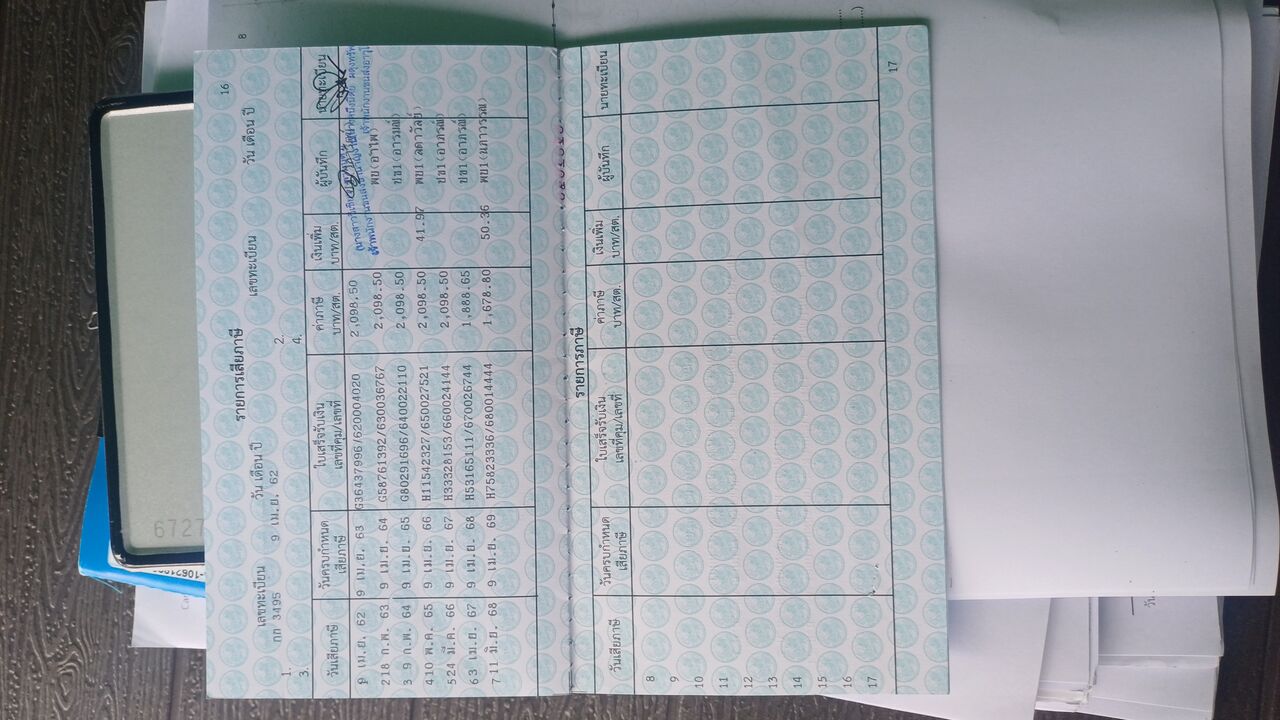 16
รายการเสียภาษี
เลขทะเบียน วัน เดือน ปี เลขทะเบียน วัน เดือน ปี
1. กก 3495 9 เม.ย. 62 2.
3. 4.
วันเสียภาษี วันครบกำหนดเสียภาษี ใบเสร็จรับเงิน เลขที่คุม/เลขที่ ค่าภาษี บาท/สต. เงินเพิ่ม บาท/สต. ผู้บันทึก นายทะเบียน
9 เม.ย. 62 9 เม.ย. 63 G36437996/620004020 2,098.50
2 18 ก.พ. 63 9 เม.ย. 64 G58761392/630036767 2,098.50 พย(อำไพ)
3 9 ก.พ. 64 9 เม.ย. 65 G80291696/640022110 2,098.50 ปช1(อารมณ์)
4 10 พ.ค. 65 9 เม.ย. 66 H11542327/650027521 2,098.50 41.97 พย1(ลดาวัลย์)
5 24 มี.ค. 66 9 เม.ย. 67 H33328153/660024144 2,098.50 ปช1(อาภรณ์)
6 3 เม.ย. 67 9 เม.ย. 68 H53165111/670026744 1,888.65 ปช1(อาภรณ์)
7 11 มิ.ย. 68 9 เม.ย. 69 H75823336/680014444 1,678.80 50.36 พย1(นภาวรรณ)
รายการภาษี
วันเสียภาษี วันครบกำหนดเสียภาษี ใบเสร็จรับเงิน เลขที่คุม/เลขที่ ค่าภาษี บาท/สต. เงินเพิ่ม บาท/สต. ผู้บันทึก นายทะเบียน
8
9
10
11
12
13
14
15
16
17
17
6727
8